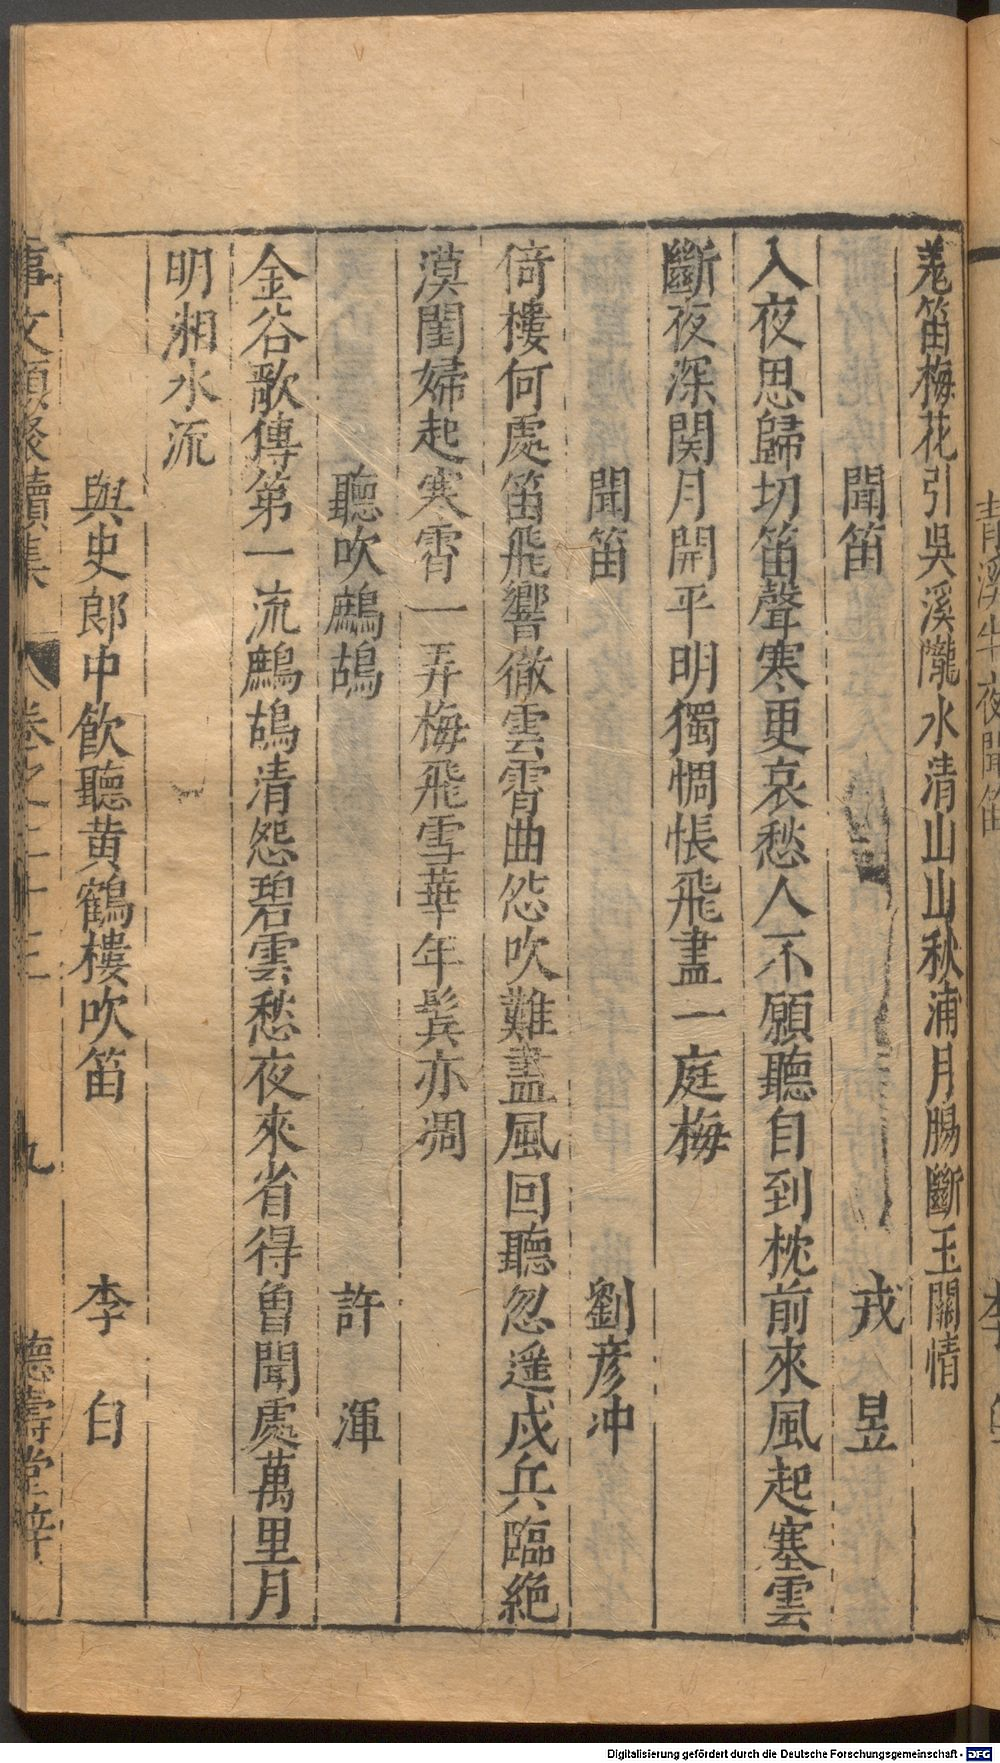 青溪半夜聞笛
羗笛梅花引吳溪隴水清山山秋浦月腸斷玉關情
聞笛 戎昱
入夜思歸切笛聲寒更哀愁人不願聽自到枕前來風起塞雲
斷夜深関月開平明獨惆悵飛盡一庭梅
聞笛 劉彦冲
倚樓何處笛飛響徹雲霄曲怨吹難盡風回聽忽遥戍兵臨絶
漠閨婦起寒霄一弄梅飛雪華年鬂亦凋
聽吹鷓鴣 許渾
金谷歌傳第一流鷓鴣清怨碧雲愁夜來省得曾聞處萬里月
明湘水流
與史郎中飲聽黄鶴樓吹笛 李白
事文類聚續集 卷之二十三 九 德壽堂梓
Digitalisierung gefördert durch die Deutsche Forschungsgemeinschaft - DFG